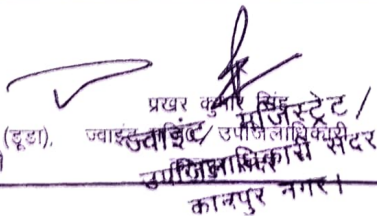 प्रखर कुमार सिंह
(डूडा), ज्वाइंट मजिस्ट्रेट/उपजिलाधिकारी
ज्वाइंट मजिस्ट्रेट/
उपजिलाधिकारी सदर
कानपुर नगर।